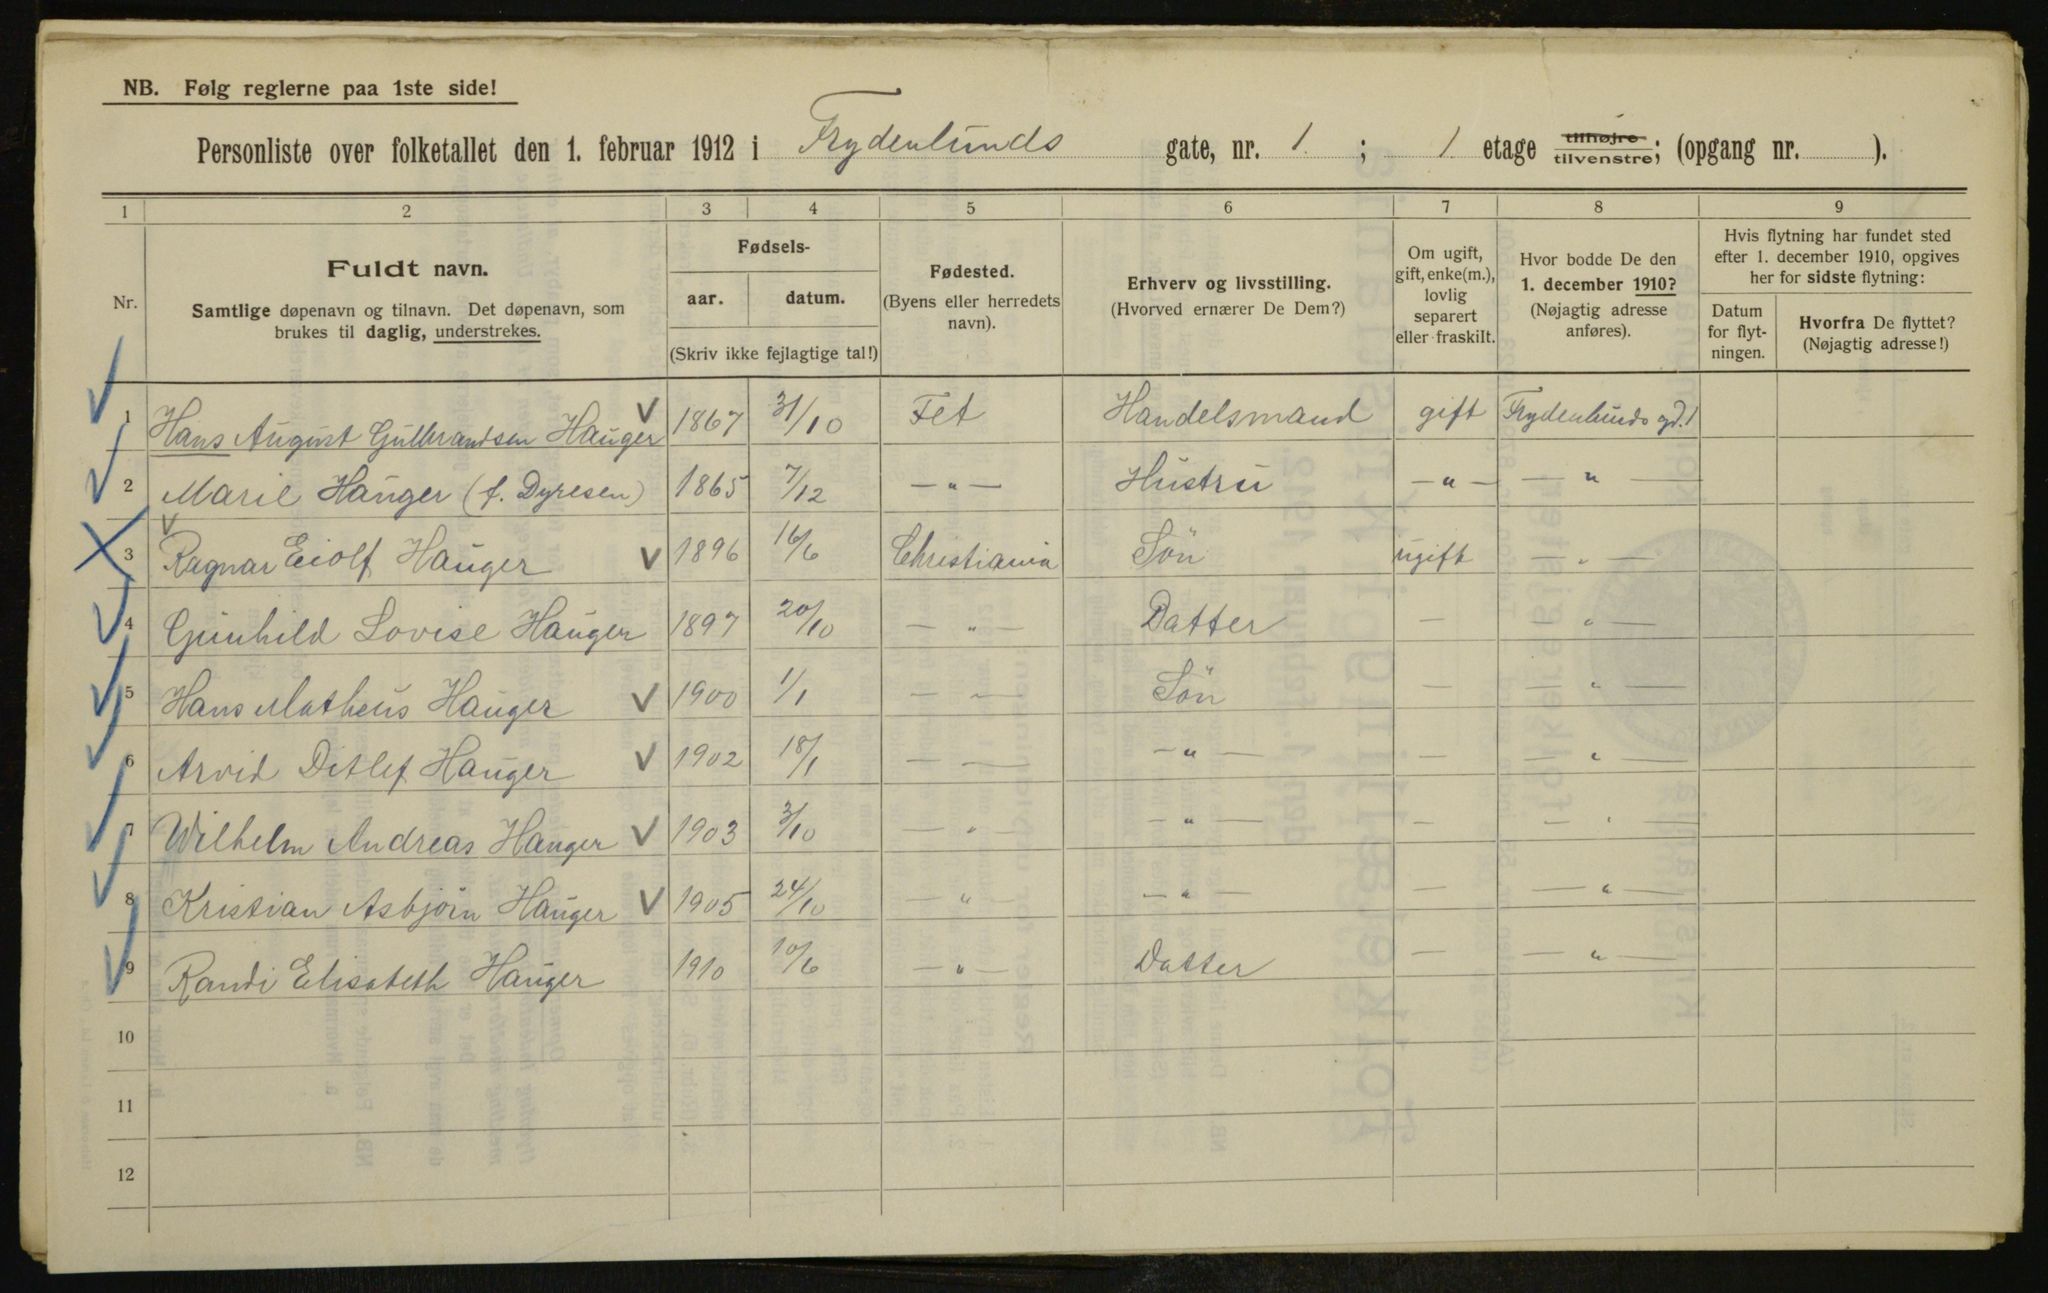 NB. Følg reglerne paa 1ste side!
Personliste over folketallet den 1. februar 1912 i Frydenlunds gate, nr. 1 ; 1 etage tilhøjre tilvenstre; (opgang nr. ).
1 2 3 4 5 6 7 8 9
Nr.
Fuldt navn.
Samtlige døpenavn og tilnavn. Det døpenavn, som
brukes til daglig, understrekes.
Fødsels-
aar. datum.
(Skriv ikke fejlagtige tal!)
Fødested.
(Byens eller herredets
navn).
Erhverv og livsstilling.
(Hvorved ernærer De Dem?)
Om ugift,
gift, enke(m.),
lovlig
separert
eller fraskilt.
Hvor bodde De den
1. december 1910?
(Nøjagtig adresse
anføres).
Hvis flytning har fundet sted
efter 1. december 1910, opgives
her for sidste flytning:
Datum
for flyt-
ningen.
Hvorfra De flyttet?
(Nøjagtig adresse!)
1 Hans August Gulbrandsen Hauger 1867 31/10 Fet Handelsmand gift Frydenlunds gd. 1
2 Marie Hauger (f. Dyresen) 1865 7/12 — " — Hustru — " — — " —
3 Ragnar Eiolf Hauger 1896 16/6 Christiania Sön ugift — " —
4 Gunhild Lovise Hauger 1897 20/10 — " — Datter — " —
5 Hans Matheus Hauger 1900 1/1 — " — Sön — — " —
6 Arvid Ditlef Hauger 1902 18/1 — " — — " — — — " —
7 Wilhelm Andreas Hauger 1903 3/10 — " — — " — — — " —
8 Kristian Asbjörn Hauger 1905 24/10 — " — — " — — — " —
9 Randi Elisabeth Hauger 1910 10/6 — " — Datter — — " —
10
11
12